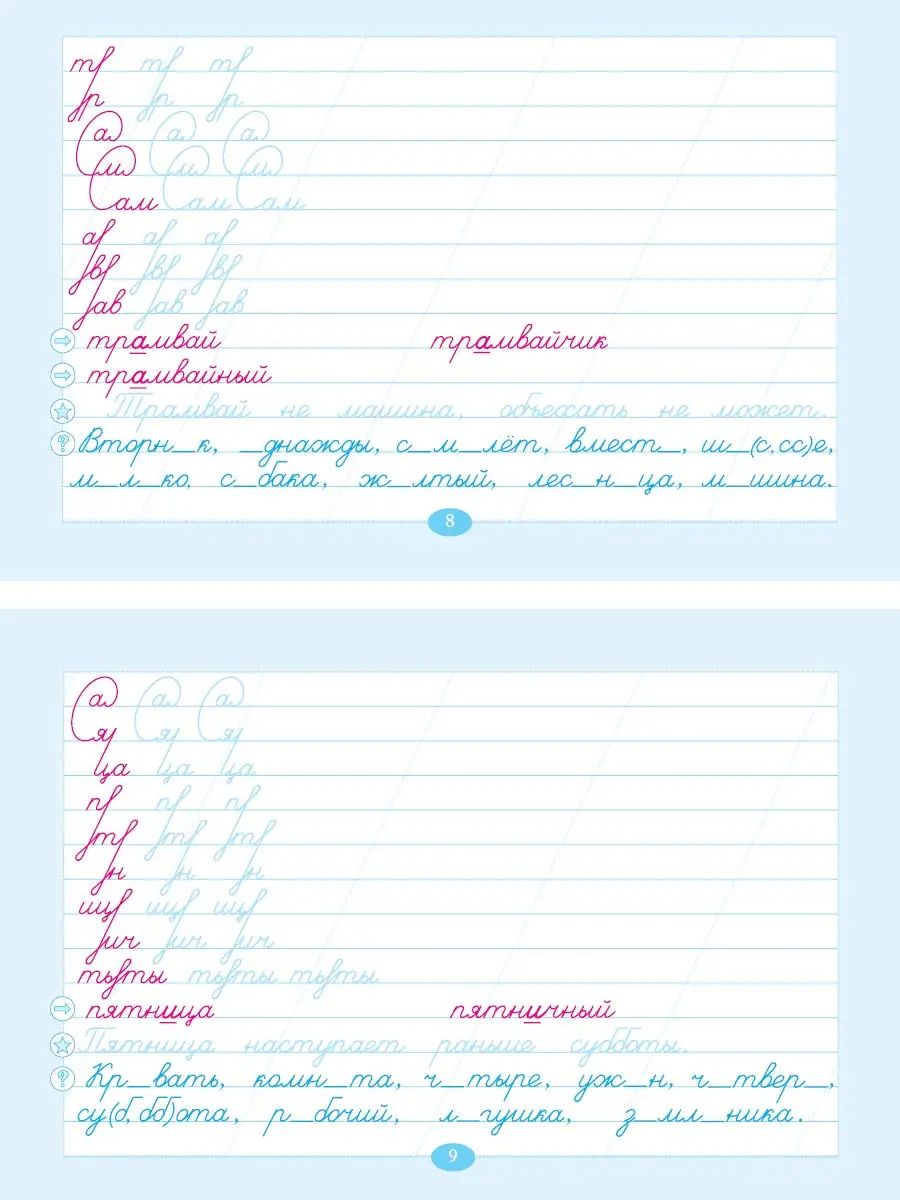 тр тр тр
р р р
Са Са Са
См См См
Сам Сам Сам
а а а
в в в
ав ав ав
трамвай трамвайчик
трамвайный
Трамвай не машина, объехать не может.
? Вторн_к, _днажды, с_м_лёт, вмест_, ш_(с, сс)е,
м_л_ко, с_бака, ж_лтый, лес_н_ца, м_шина.
8
Са Са Са
Ся Ся Ся
ца ца ца
п п п
т т т
н н н
щ щ щ
ич ич ич
ть ты ть ты ть ты
пятница пятничный
Пятница наступает раньше субботы.
? Кр_вать, комн_та, ч_тыре, уж_н, ч_твер_,
су(б, бб)ота, р_бочий, л_гушка, з_мл_ника.
9